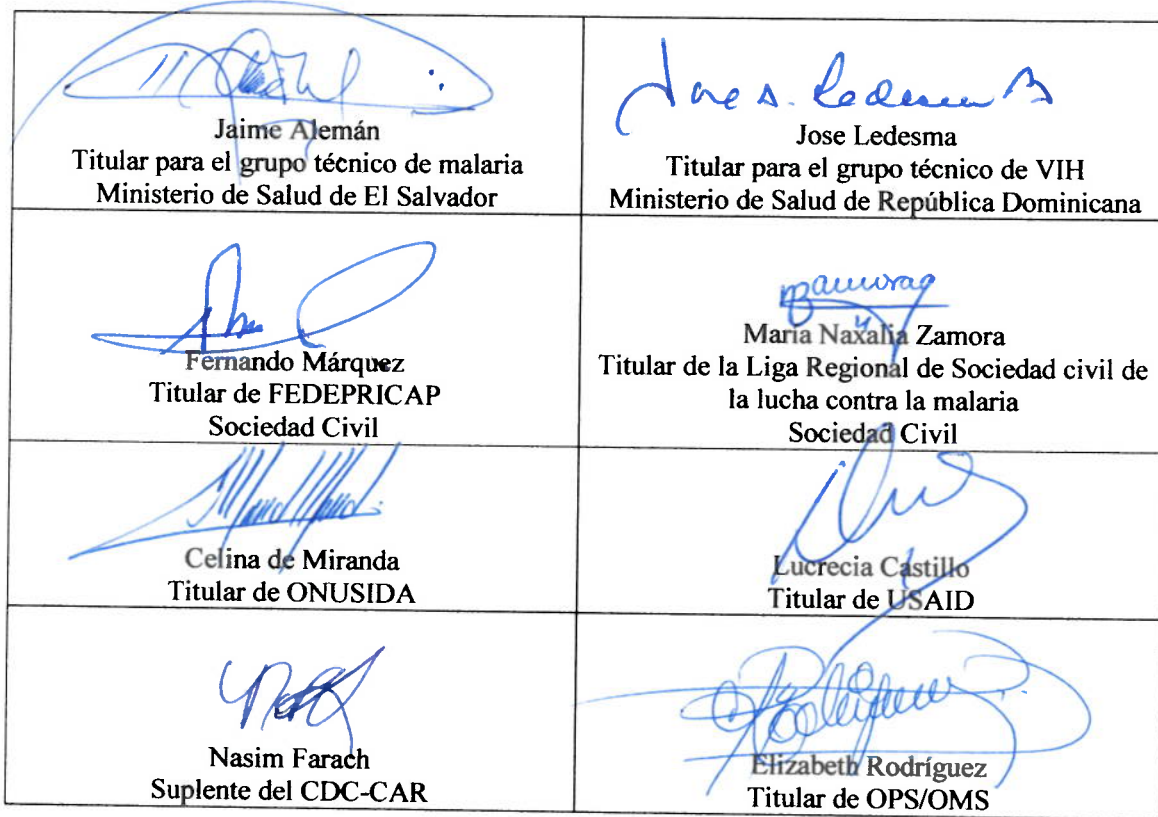 Jaime Alemán
Titular para el grupo técnico de malaria
Ministerio de Salud de El Salvador
Jose A. Ledesma
Jose Ledesma
Titular para el grupo técnico de VIH
Ministerio de Salud de República Dominicana
Fernando Márquez
Titular de FEDEPRICAP
Sociedad Civil
Maria Naxalia Zamora
Titular de la Liga Regional de Sociedad civil de
la lucha contra la malaria
Sociedad Civil
Celina de Miranda
Titular de ONUSIDA
Lucrecia Castillo
Titular de USAID
Nasim Farach
Suplente del CDC-CAR
Elizabeth Rodríguez
Titular de OPS/OMS